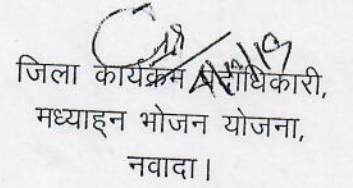 जिला कार्यक्रम पदाधिकारी,
मध्याह्न भोजन योजना,
नवादा।